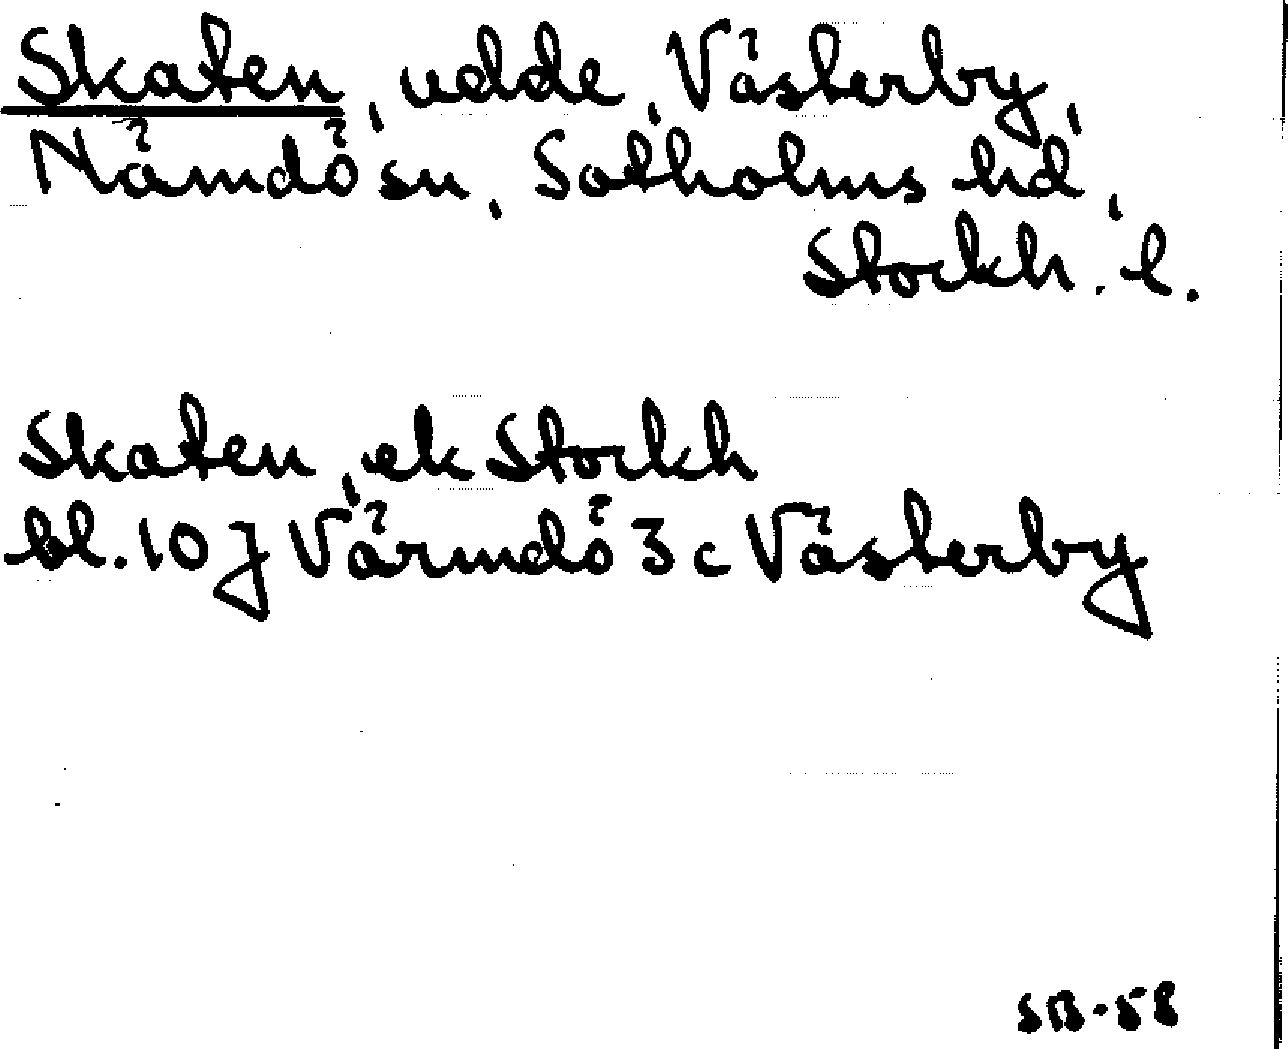 Skaten, udde, Västerby,
Nämdö sn, Sotholms hd,
Stockh. l.
Skaten, ek Stockh
bl. 10 J Värmdö 3 c Västerby
SB-58